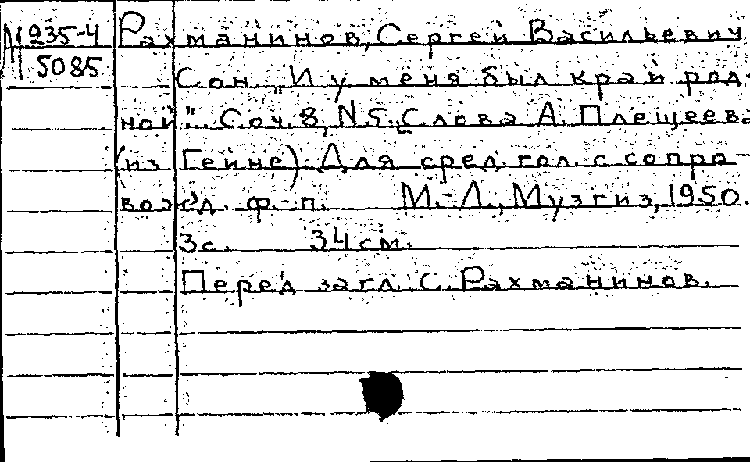 М 235-4 Рахманинов, Сергей Васильевич
5085 Сон. „И у меня был край род-
ной". Соч. 8, N 5. Слова А. Плещеева
(из Гейне). Для сред. гол. с сопро
вожд. ф.-п. М.-Л., Музгиз, 1950.
3с. 34 см.
Перед загл. С. Рахманинов.